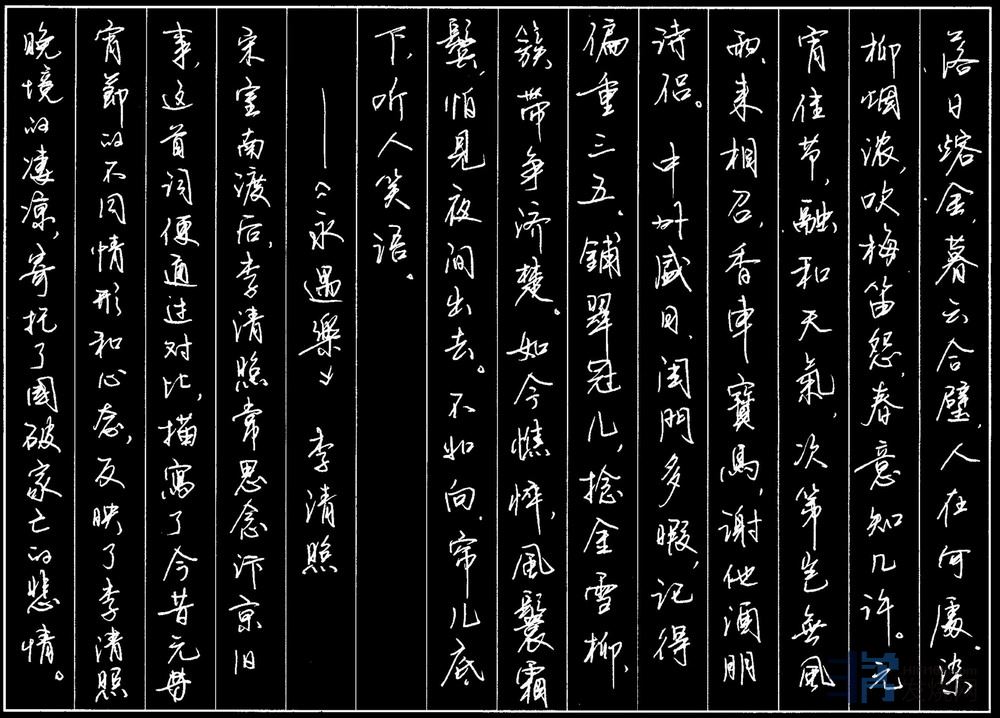 落日熔金，暮云合璧，人在何處。染
柳烟浓，吹梅笛怨，春意知几许。元
宵佳节，融和天氣，次第岂無風
雨，来相召，香車寶馬，谢他酒朋
诗侣。中州盛日，闺門多暇，记得
偏重三五，鋪翠冠儿，捻金雪柳，
簇带争济楚。如今憔悴，風鬟霜
鬓，怕見夜间出去。不如向，帘儿底
下，听人笑语。
——《永遇樂》 李清照
宋室南渡后，李清照常思念汴京旧
事，这首词便通过对比，描寫了今昔元宵
宵節的不同情形和心态，反映了李清照
晚境的凄凉，寄托了國破家亡的悲情。